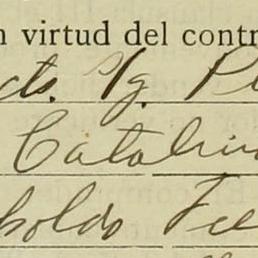 n virtud del contr
cts. %g. Pl
Catalin
boldo Fe